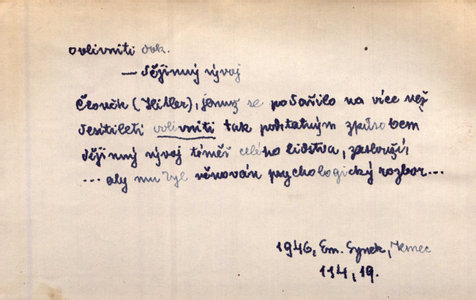 ovlivniti dok.
— dějinný vývoj
Člověk (Hitler), jemuž se podařilo na více než
desítiletí ovlivniti tak podstatným způsobem
dějinný vývoj téměř celého lidstva, zaslouží,
... aby mu byl věnován psychologický rozbor...
1946, Em. Synek, Nemec
114, 19.